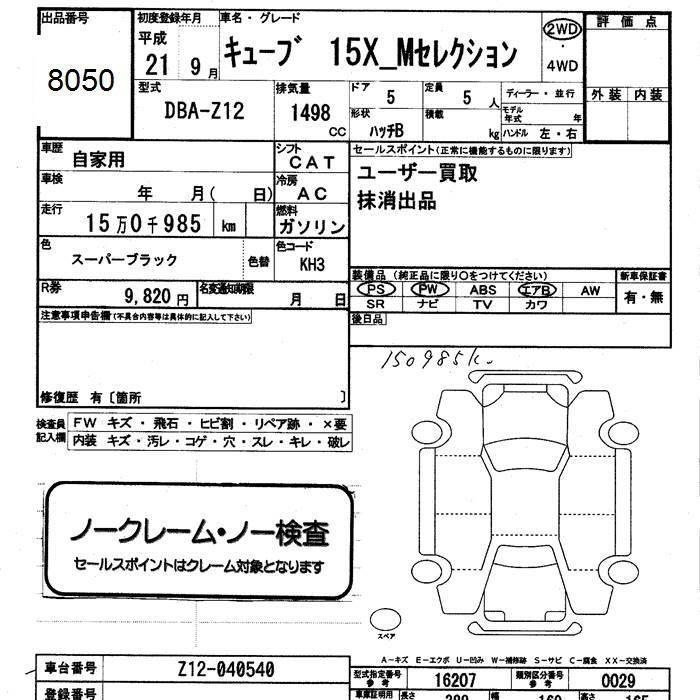 出品番号
8050
初度登録年月
平成
21 9 月
車名・グレード
キューブ 15X_Mセレクション
2WD
・
4WD
評価点
外装 内装
型式
DBA-Z12
排気量
1498
CC
ドア
5
定員
5 人
ディーラー・並行
モデル年式 年
形状
ハッチB
積載
kg
ハンドル 左・右
車歴
自家用
シフト
CAT
車検
年 月( 日)
冷房
AC
走行
15万0千985 km
燃料
ガソリン
色
スーパーブラック
色替
色コード
KH3
R券
9,820 円
名変通知期限
月 日
セールスポイント(正常に機能するものに限ります)
ユーザー買取
抹消出品
装備品 (純正品に限り○をつけてください)
PS PW ABS エアB AW
SR ナビ TV カワ
新車保証書
有・無
後日品
注意事項申告欄(不具合内容等は具体的に記入して下さい)
修復歴 有〔箇所 〕
150985k.
検査員記入欄
FW キズ・飛石・ヒビ割・リペア跡・×要
内装 キズ・汚レ・コゲ・穴・スレ・キレ・破レ
ノークレーム・ノー検査
セールスポイントはクレーム対象となります
スペア
A-キズ E-エクボ U-凹み W-補修跡 S-サビ C-腐食 XX-交換済
車台番号
Z12-040540
型式指定番号
参考
16207
類別区分番号
参考
0029
登録番号
車庫証明用 長さ 389 幅 169 高さ 165